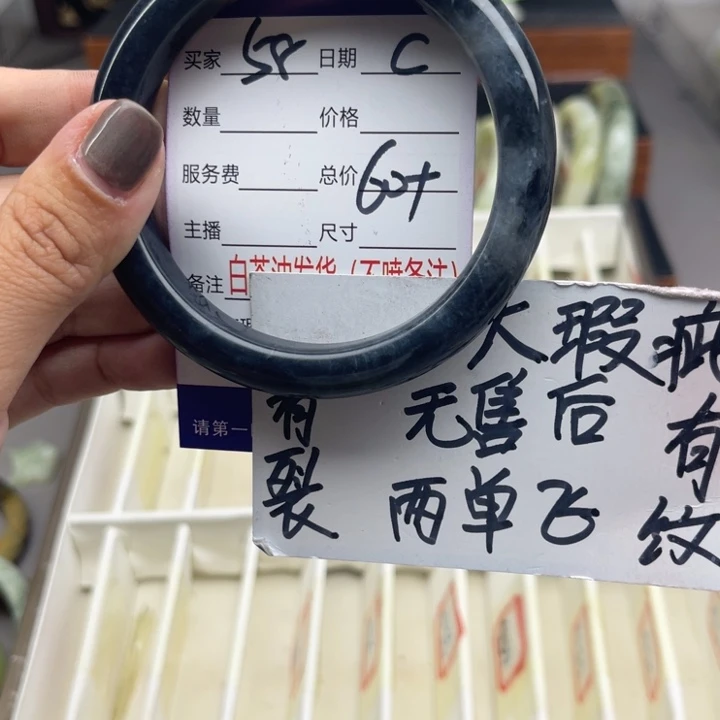 买家 58 日期 C
数量 价格
服务费 总价 60+
主播 尺寸
备注 白茶油发货（不喷备注）
请第一
大瑕疵
有 无售后 有
裂 两单飞 纹